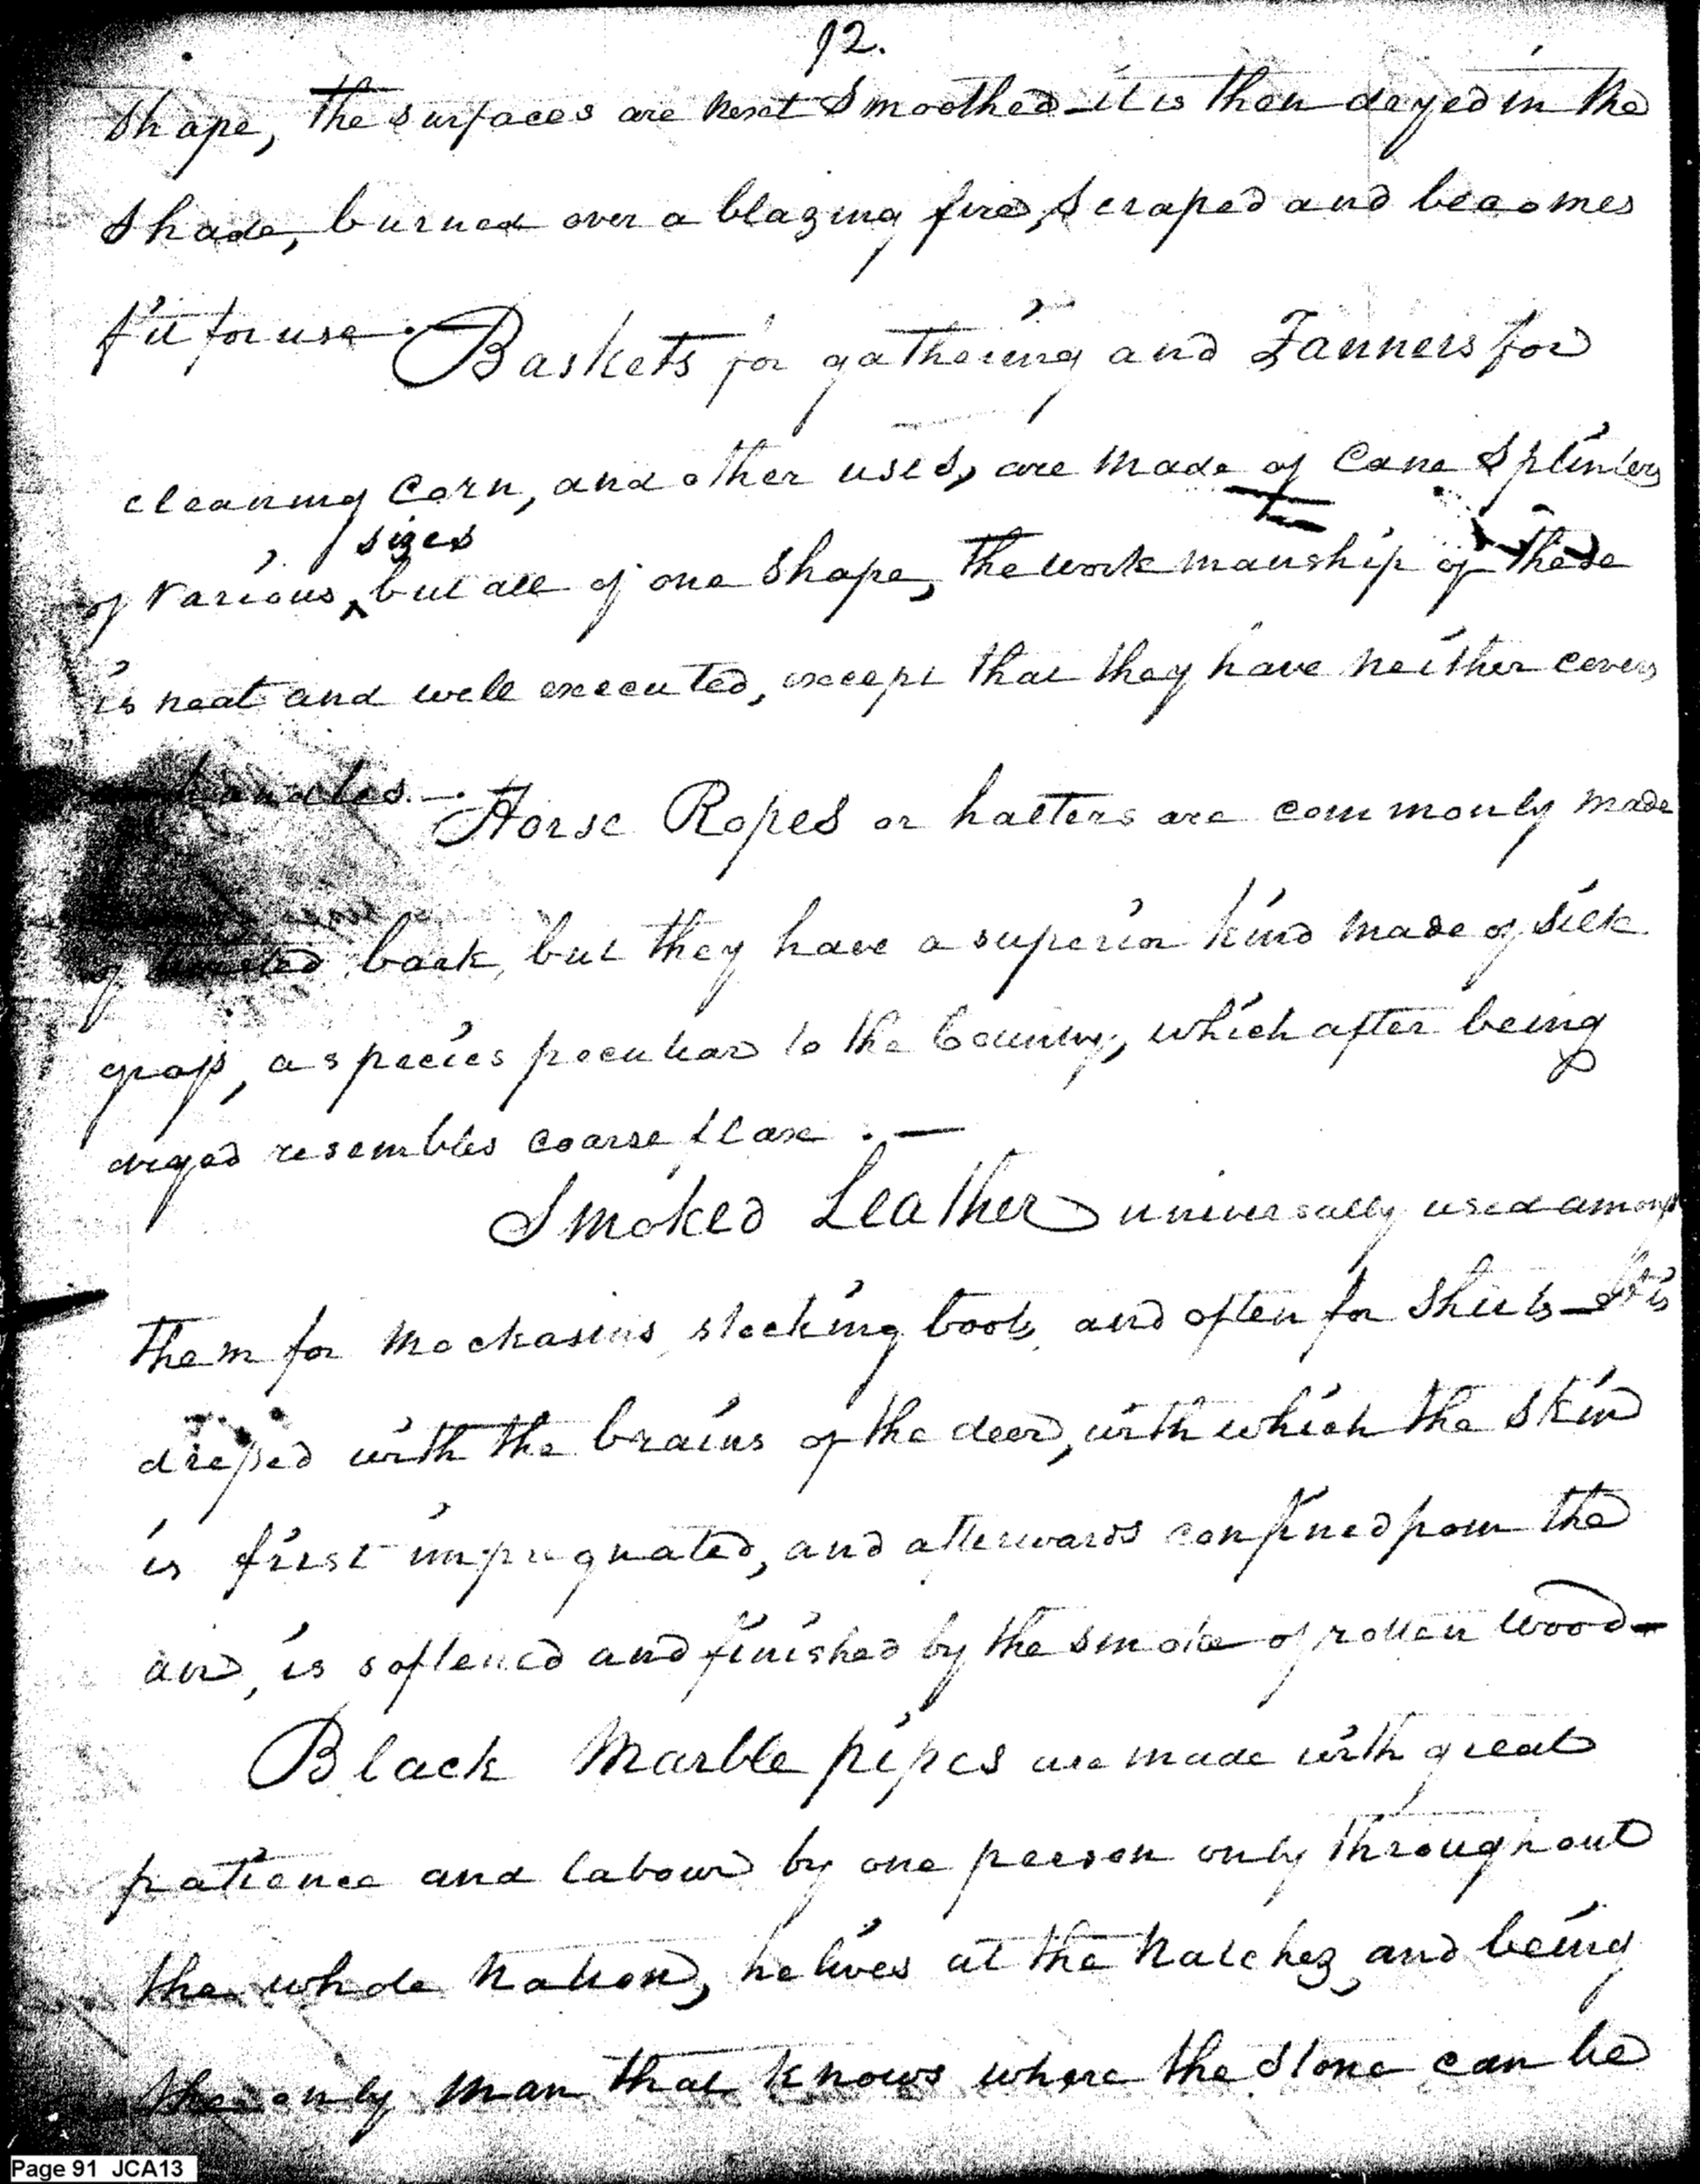 92.
shape, the surfaces are next Smoothed - it is then dryed in the
shade, burned over a blazing fire, scraped and becomes
fit for use. Baskets for gathering and Fanners for
cleaning Corn, and other uses, are made of Cane Splinters
sizes
of various ^ but all of one shape, the workmanship of these
is neat and well executed, except that they have neither covers
handles. — Horse Ropes or halters are commonly made
of bark, but they have a superior kind made of silk
grass, a species peculiar to the Country, which after being
dryed resembles coarse flax . —
Smoked Leather universally used among
them for Mockasins, stocking boots, and often for Shirts - It is
dressed with the brains of the deer, with which the Skin
is first impregnated, and afterwards confined from the
air, is softened and finished by the smoke of rotten wood -
Black Marble pipes are made with great
patience and labour by one person only throughout
the whole Nation, he lives at the Natchez, and being
the only man that knows where the Stone can be
Page 91 JCA13